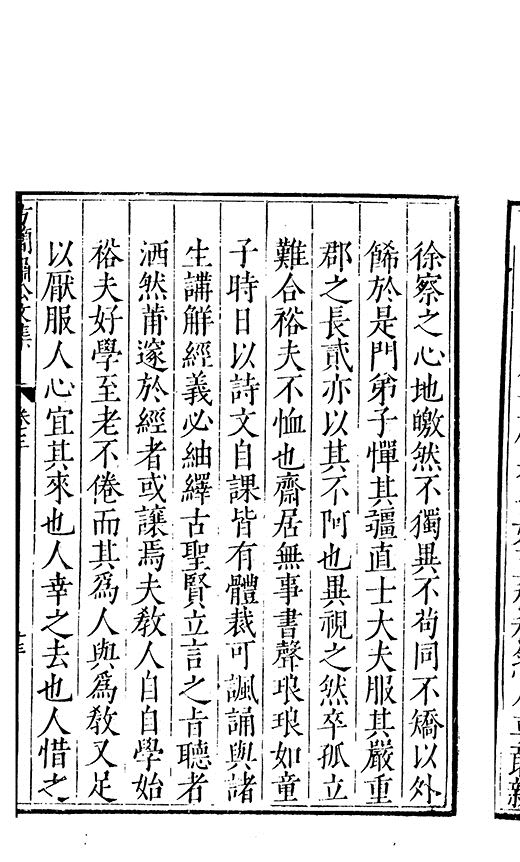 徐察之心地皦然不獨異不苟同不矯以外
餙於是門弟子憚其彊直士大夫服其嚴重
郡之長貳亦以其不阿也異視之然卒孤立
難合裕夫不恤也齋居無事書聲琅琅如童
子時日以詩文自課皆有體裁可諷誦與諸
生講解經義必紬繹古聖賢立言之旨聽者
洒然莆邃於經者或讓焉夫教人自自學始
裕夫好學至老不倦而其爲人與爲教又足
以厭服人心宜其來也人幸之去也人惜之
卷三